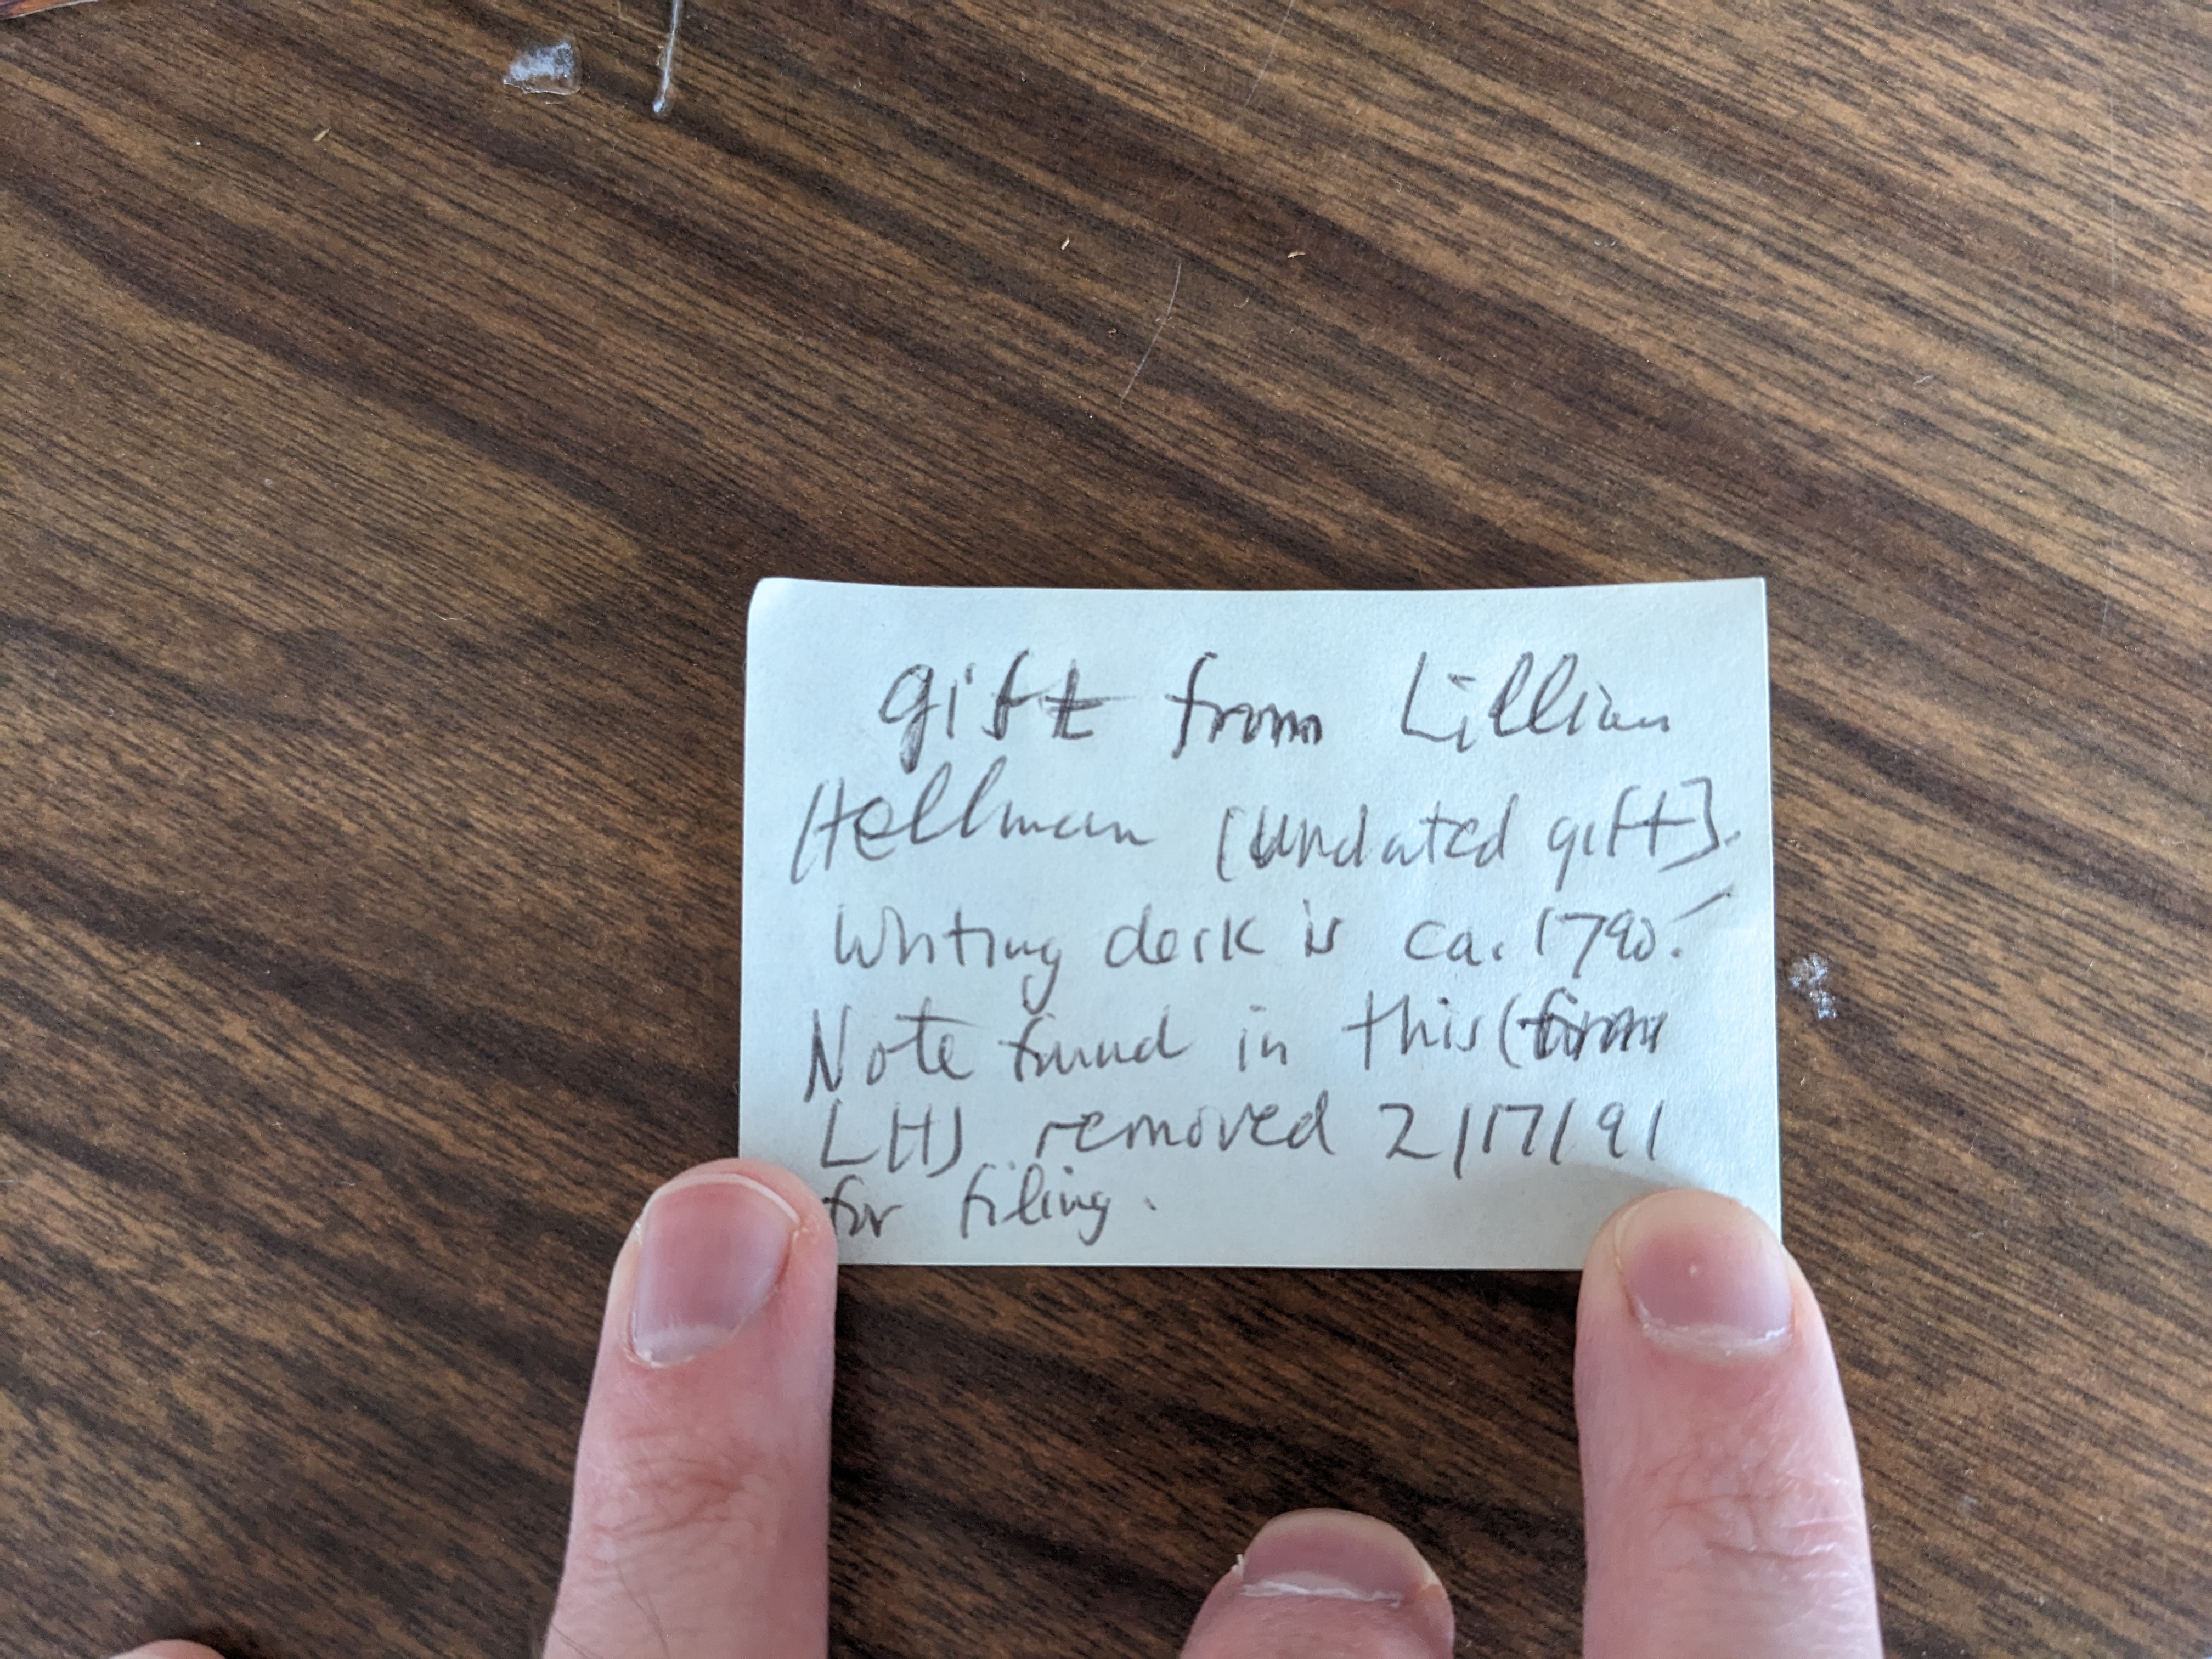 gift from Lillian
Hellman [undated gift].
Writing desk is ca. 1790.
Note found in this (from
LH) removed 2/17/91
for filing.